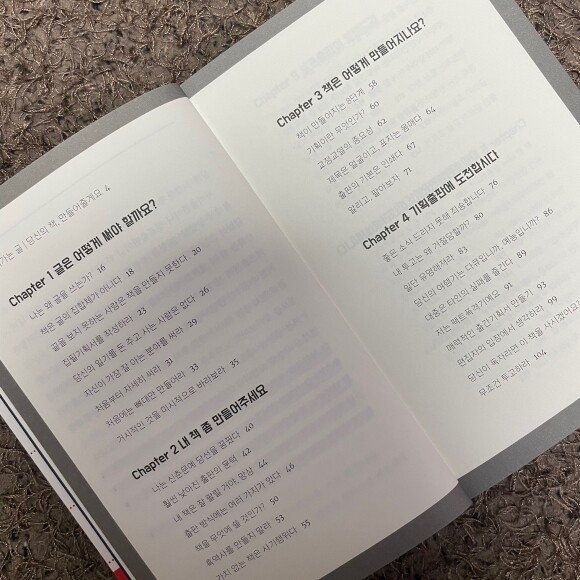 가는 글 | 당신의 책, 만들어줄게요 4
Chapter 1 글은 어떻게 써야 할까요?
나는 왜 글을 쓰는가? 16
책은 글의 집합체가 아니다 18
끝을 보지 못하는 사람은 책을 만들지 못한다 20
집필기획서를 작성하라 23
당신의 일기를 돈 주고 사는 사람은 없다 26
자신이 가장 잘 아는 분야를 써라 29
처음부터 자세히 써라 31
처음에는 뼈대만 만들어라 33
거시적인 것을 미시적으로 바라보라 35
Chapter 2 내 책 좀 만들어주세요
나는 신춘문예 당선을 꿈꿨다 40
훨씬 낮아진 출판의 문턱 42
내 책은 잘 팔릴 거야, 망상 44
출판 방식에는 여러 가지가 있다 46
책을 무엇에 쓸 것인가? 50
흑역사를 만들지 말라 53
가치 없는 책은 사기행위다 55
Chapter 3 책은 어떻게 만들어지나요?
책이 만들어지는 8단계 58
기획이란 무엇인가? 60
교정교열의 중요성 62
제목은 얼굴이고, 표지는 몸매다 64
출판의 기본은 인쇄다 67
알리고, 팔아보자 71
Chapter 4 기획출판에 도전합시다
좋은 소식 드리지 못해 죄송합니다 76
내 투고는 왜 거절당할까? 80
일단 유명해져라 83
당신의 여행기는 다큐입니까, 예능입니까? 86
대충은 타인의 실패를 즐긴다 89
저는 팩트폭격기예요 91
매력적인 출간기획서 만들기 93
편집자의 입장에서 생각하라 99
당신이 독자라면 이 책을 사시겠어요?
무조건 투고하라 104